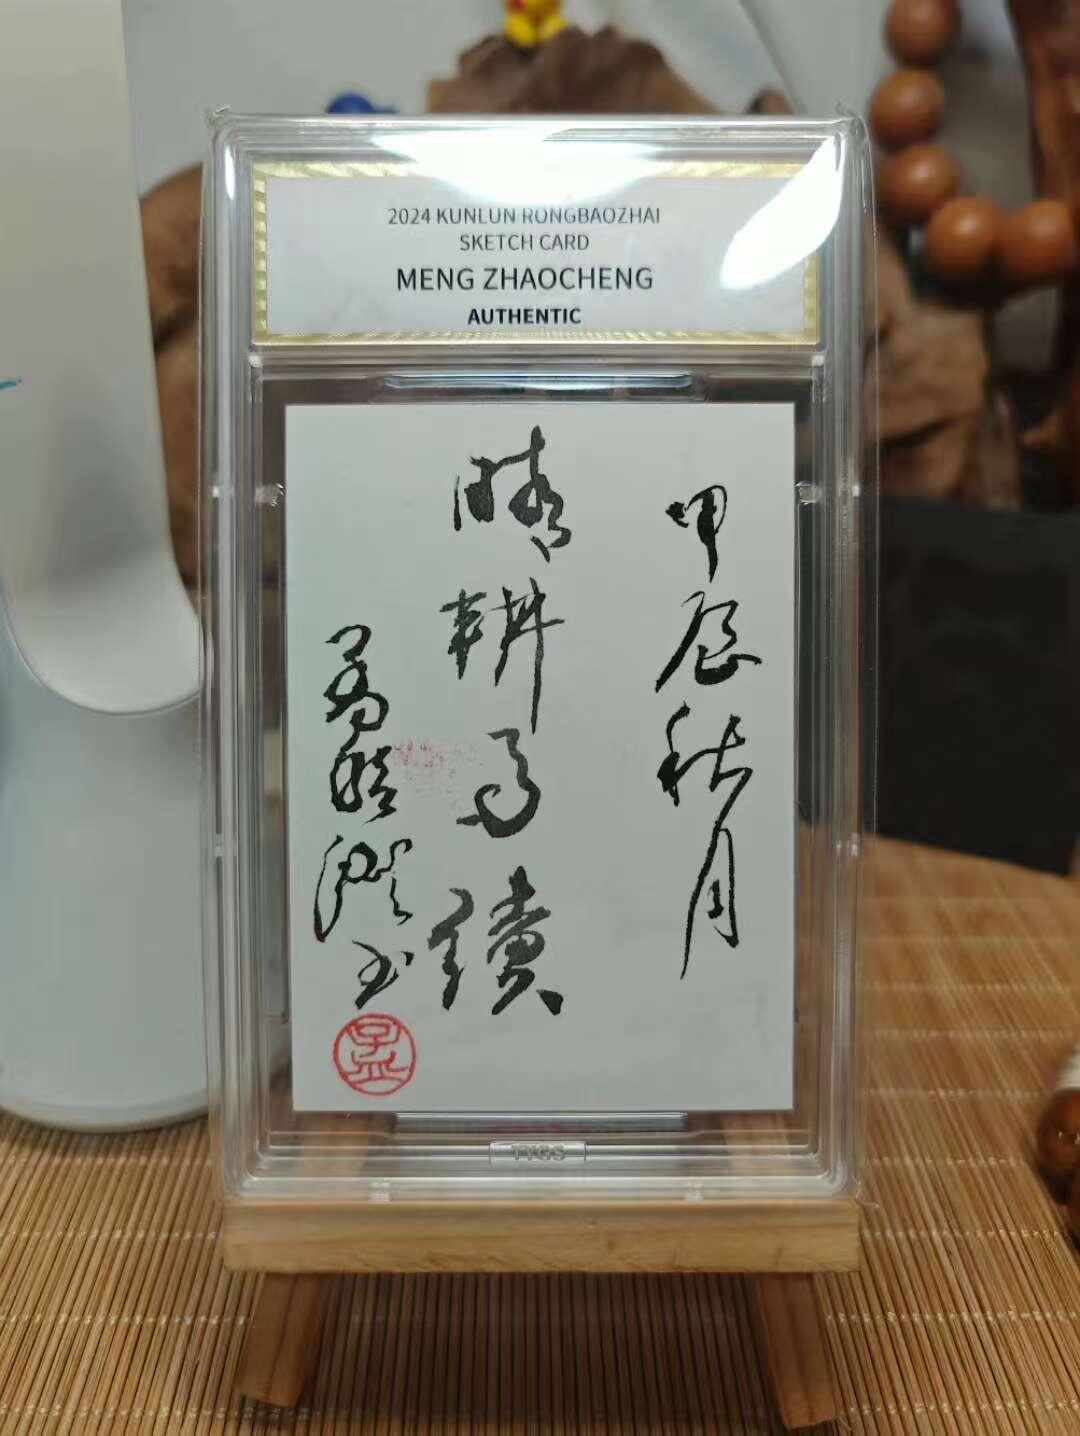 2024 KUNLUN RONGBAOZHAI
SKETCH CARD
MENG ZHAOCHENG
AUTHENTIC
甲辰秋月
晴耕雨讀
孟昭澄书
TYGS